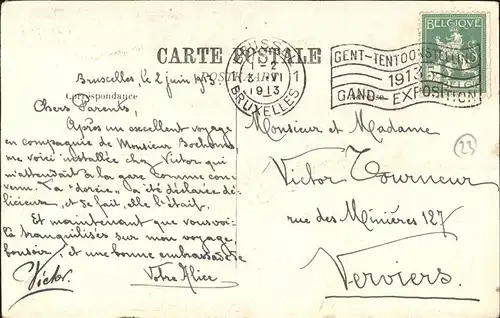 CARTE POSTALE
BRUSSEL
1 1
3-VI
1913
BRUXELLES
GENT-TENTOONSTELLING
1913
GAND EXPOSITION
BELGIQUE
5 5
BELGIË
Correspondance
Bruxelles, le 2 juin 1913.
Chers Parents,
Après un excellent voyage
en compagnie de Monsieur
me voici installée chez Victor qui
m'attendait à la gare comme con-
venu. La "dorée" a été déclarée dé-
licieuse, et de fait, elle l'était.
Et maintenant que vous voi-
là tranquilisés sur mon voyage,
bonsoir, et une bonne embrassade de
Votre Alice
Victor.
Monsieur et Madame
Victor Tourneur
rue des Minières 127
Verviers.
23